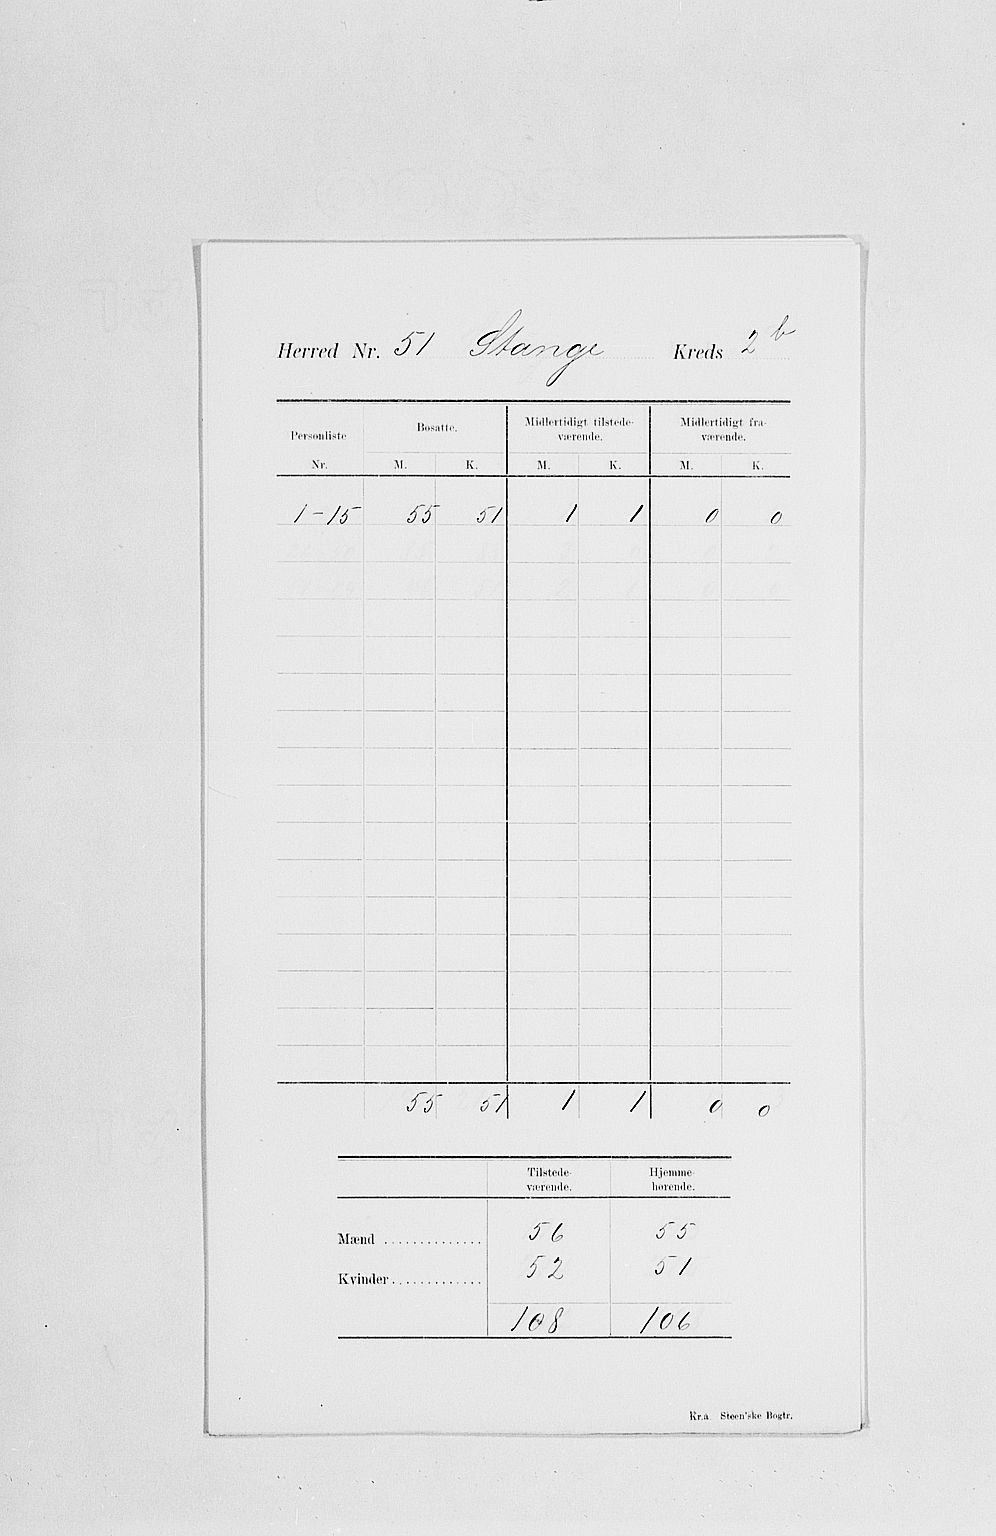 Herred Nr. 51 Stange Kreds 2 b
Personliste Bosatte. Midlertidigt tilstede- Midlertidigt fra-
værende. værende.
Nr. M. K. M. K. M. K.
1-15 55 51 1 1 0 0
55 51 1 1 0 0
Tilstede- Hjemme-
værende. hørende.
Mænd .............. 56 55
Kvinder............. 52 51
108 106
Kr.a Steen'ske Bogtr.